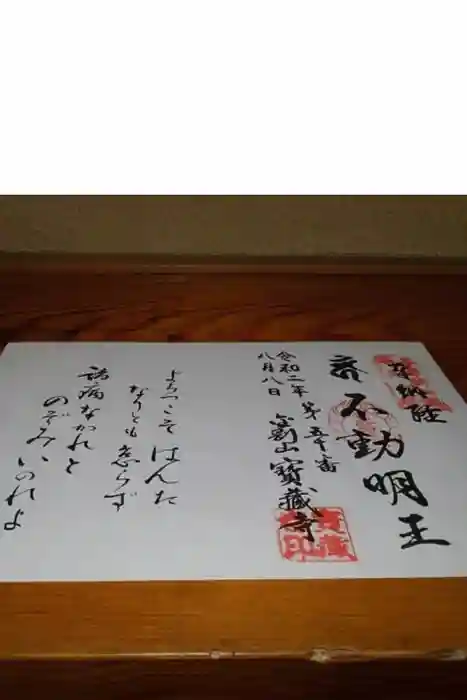 奉納経
不動明王
第五十番
金剛山寳蔵寺
令和二年
八月八日
よろこそはんた
なりとも怠らず
諸病なかれと
のぞみいのれよ